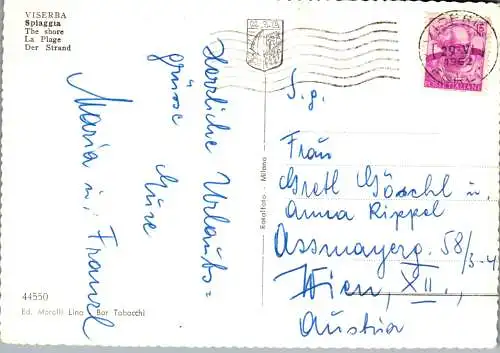 VISERBA
Spiaggia
The shore
La Plage
Der Strand
Herzliche Urlaubs=
grüsse
Eure
Maria u. Franzl
44550
Ed. Morolli Lina - Bar Tabacchi
Rotalfoto - Milano
VISERBA
29-VI
1962
POSTE ITALIANE
S. g.
Frau
Gretl Göschl u.
Anna Rippel
Assmayerg. 58/3-4
Wien, XII.,
Austria